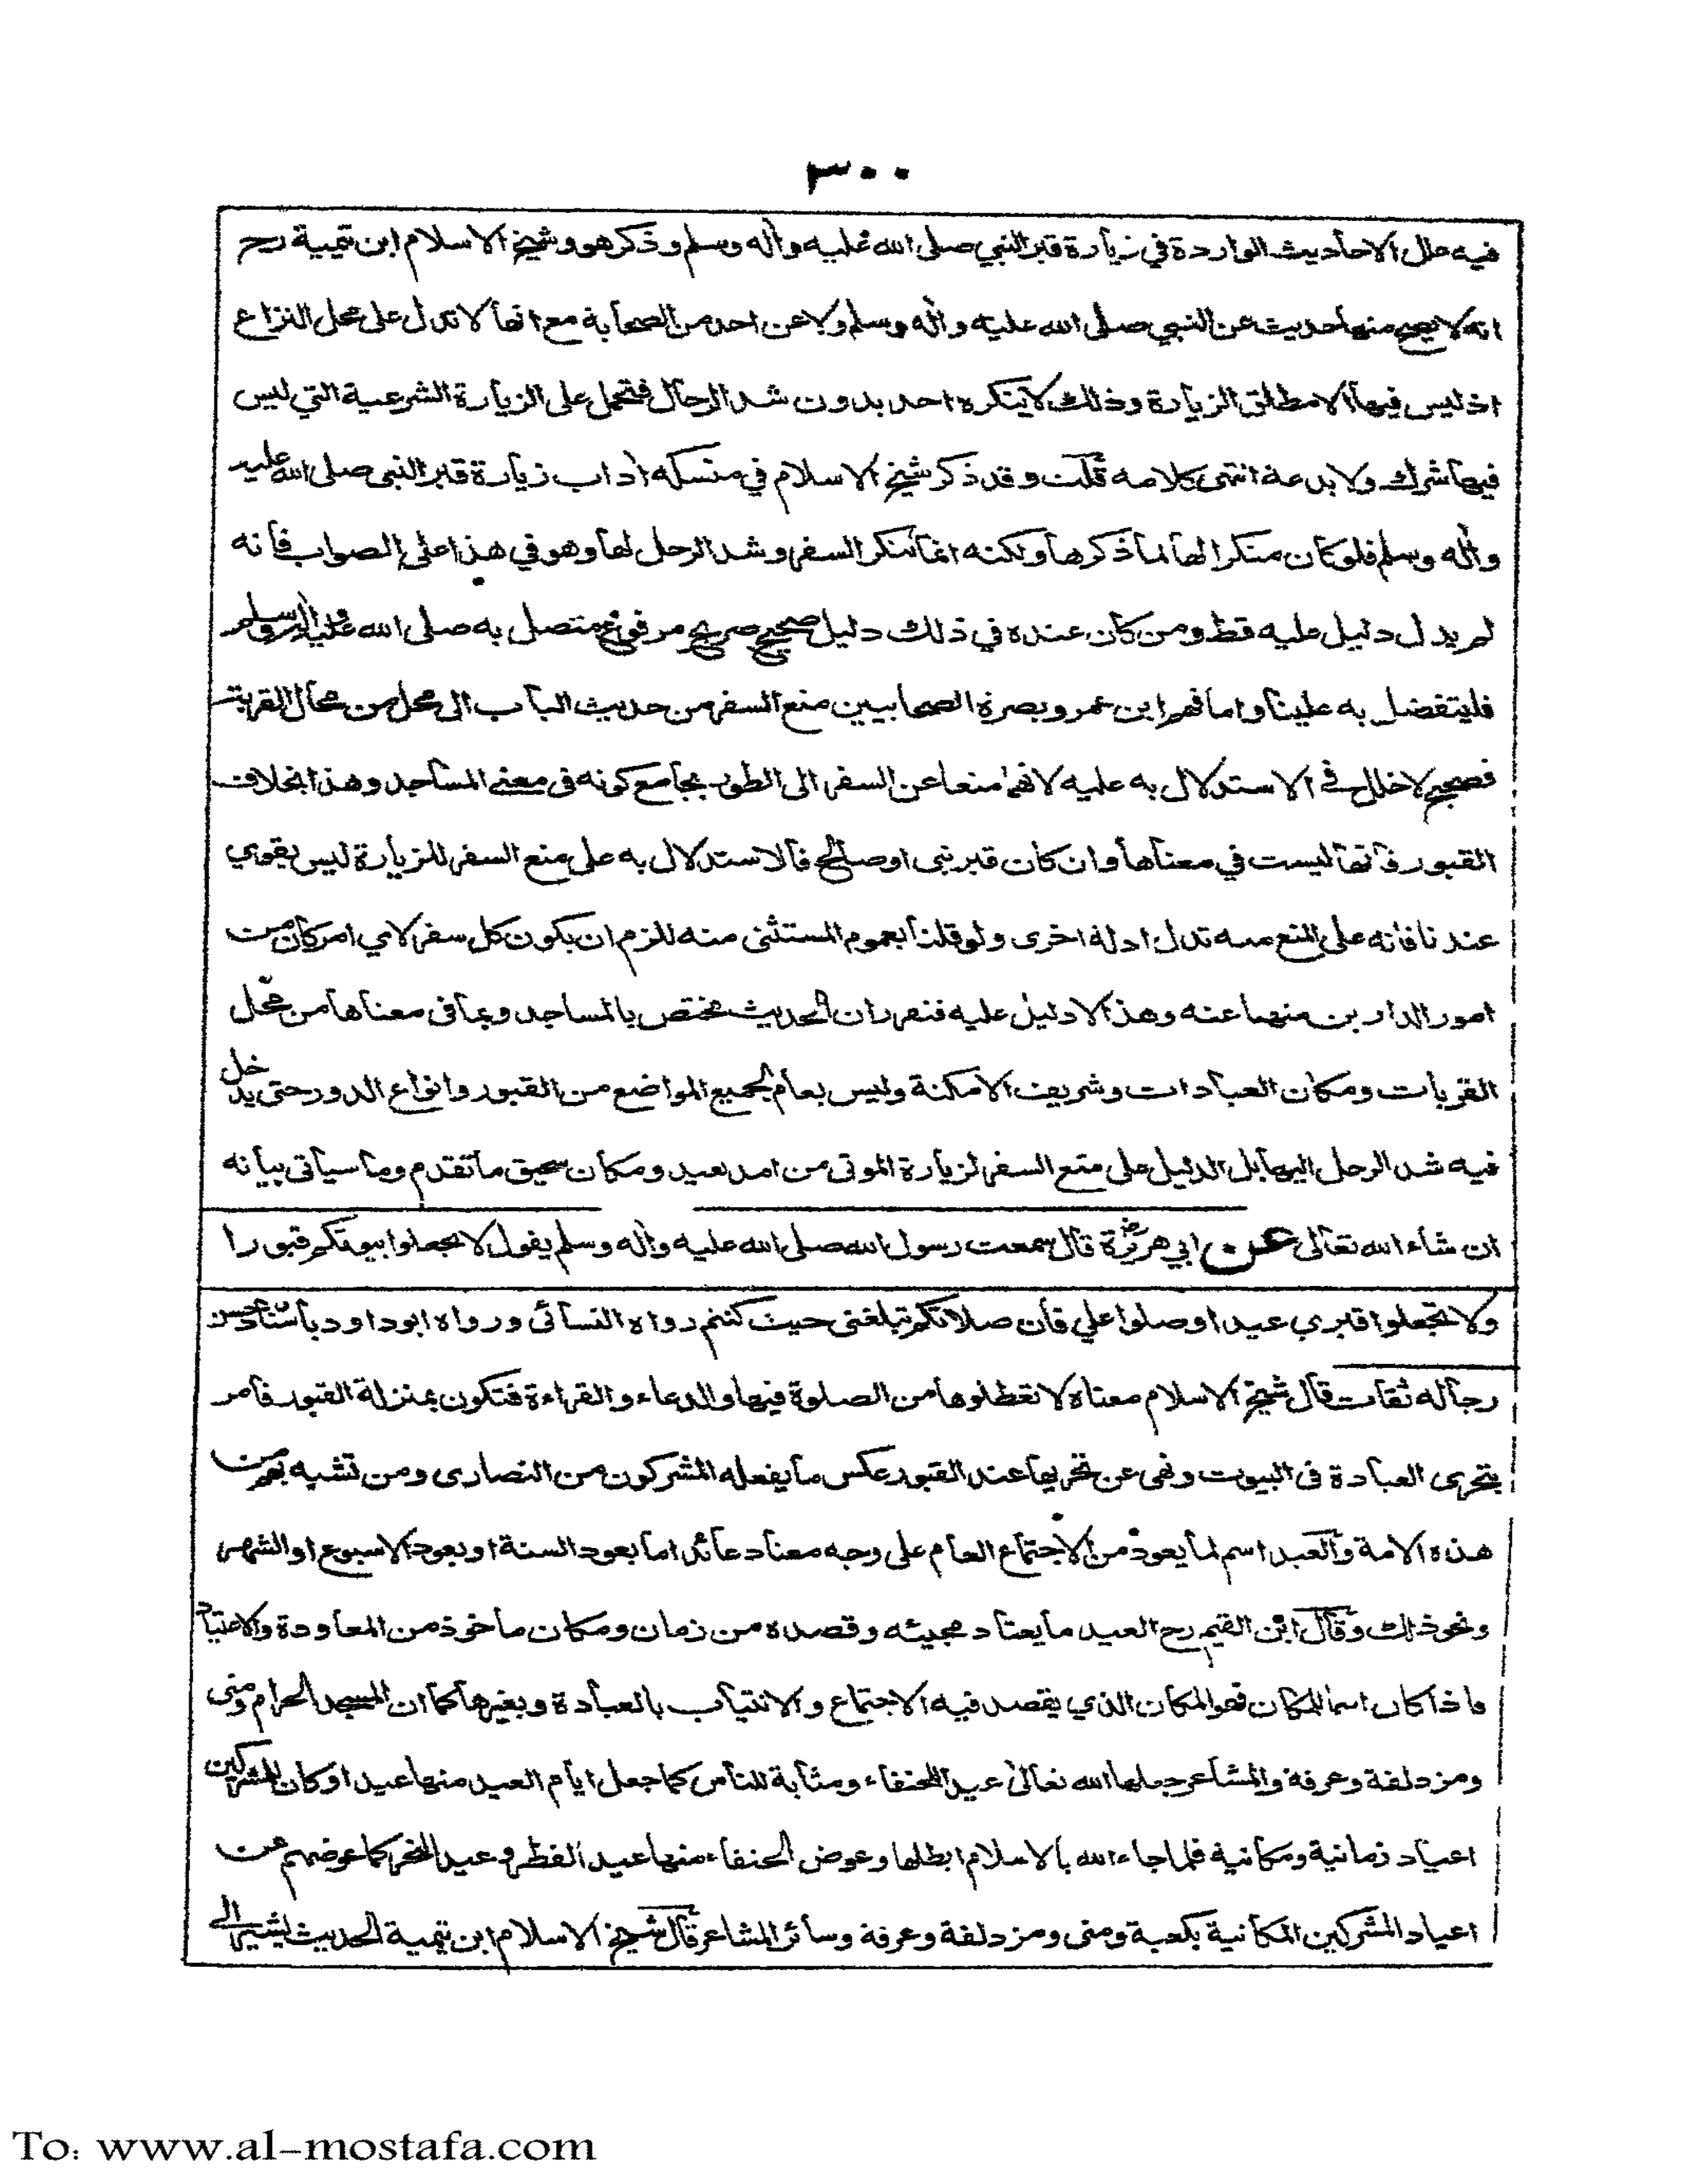 ٣٠٠
فيه علل الاحاديث الواردة في زيارة قبر النبي صلى الله عليه وآله وسلم وذكر هو وشيخ الاسلام ابن تيمية رح
انه لا يصح منها حديث عن النبي صلى الله عليه وآله وسلم ولا عن احد من الصحابة مع انها لا تدل على محل النزاع
اذ ليس فيها الا مطلق الزيارة وذلك لا ينكره احد بدون شد الرحال فتحمل على الزيارة الشرعية التي ليس
فيها شرك ولا بدعة انتهى كلامه قلت وقد ذكر شيخ الاسلام في منسكه آداب زيارة قبر النبي صلى الله عليه
وآله وسلم فلو كان منكرا لها لما ذكرها ولكنه انما ينكر السفر وشد الرحل لها وهو في هذا على الصواب فانه
لم يدل دليل عليه قط ومن كان عنده في ذلك دليل صحيح صريح مرفوع متصل به صلى الله عليه وآله وسلم
فليتفضل به علينا واما فهم ابن عمر وبصرة الصحابيين منع السفر من حديث الباب الى محل من محال القربة
فصحيح لا خلل في الاستدلال به عليه لانهما منعا عن السفر الى الطور بجامع كونه في معنى المساجد وهذا بخلاف
القبور فانها ليست في معناها وان كان قبر نبي او صالح فالاستدلال به على منع السفر للزيارة ليس بقوي
عندنا فانه على المنع منه تدل ادلة اخرى ولو قلنا بعموم المستثنى منه للزم ان يكون كل سفر لاي امر كان من
امور الدارين منهيا عنه وهذا لا دليل عليه فتقرر ان الحديث مختص بالمساجد وبما في معناها من محل
القربات ومكان العبادات وشريف الامكنة وليس بعام لجميع المواضع من القبور وانواع الدور حتى يدخل
فيه شد الرحل اليها بل الدليل على منع السفر لزيارة الموتى من امد بعيد ومكان سحيق ما تقدم وما سيأتي بيانه
ان شاء الله تعالى عن ابي هريرة رض قال سمعت رسول الله صلى الله عليه وآله وسلم يقول لا تجعلوا بيوتكم قبورا
ولا تجعلوا قبري عيدا وصلوا علي فان صلاتكم تبلغني حيث كنتم رواه النسائي ورواه ابو داود باسناد حسن
رجاله ثقات قال شيخ الاسلام معناه لا تعطلوها من الصلوة فيها والدعاء والقراءة فتكون بمنزلة القبور فامر
بتحرى العبادة في البيوت ونهى عن تحريها عند القبور عكس ما يفعله المشركون من النصارى ومن تشبه بهم من
هذه الامة والعيد اسم لما يعود من الاجتماع العام على وجه معتاد عائد اما بعود السنة او بعود الاسبوع او الشهر
ونحو ذلك وقال ابن القيم رح العيد ما يعتاد مجيئه وقصده من زمان ومكان ماخوذ من المعاودة والاعتياد
فاذا كان اسما للمكان فهو المكان الذي يقصد فيه الاجتماع والانتياب بالعبادة وبغيرها كما ان المسجد الحرام ومنى
ومزدلفة وعرفة والمشاعر جعلها الله تعالى عيدا للحنفاء ومثابة للناس كما جعل ايام العيد منها عيدا وكان للمشركين
اعياد زمانية ومكانية فلما جاء الله بالاسلام ابطلها وعوض الحنفاء منها عيد الفطر وعيد النحر كما عوضهم عن
اعياد المشركين المكانية بكعبة ومنى ومزدلفة وعرفة وسائر المشاعر قال شيخ الاسلام ابن تيمية الحديث يشير الى
To: www.al-mostafa.com